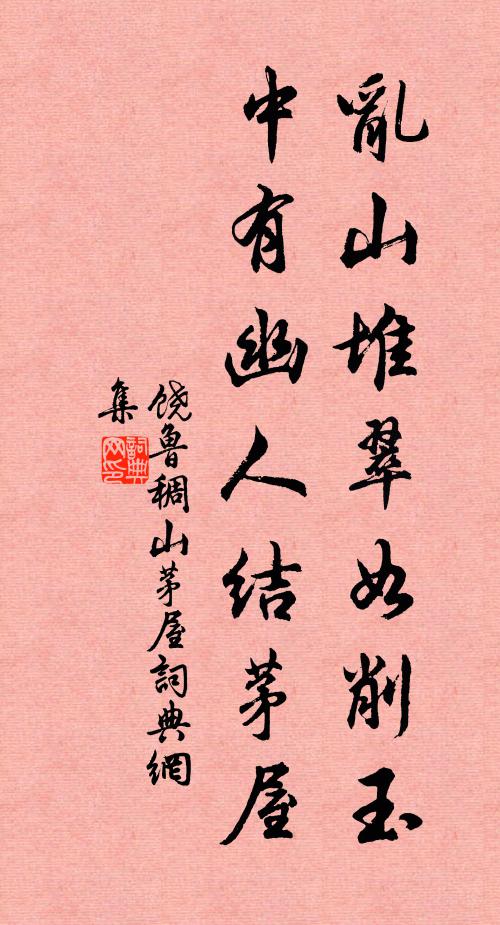 亂山堆翠如削玉
中有幽人结茅屋
饶鲁稠山茅屋詞典網
集
詞典
网印